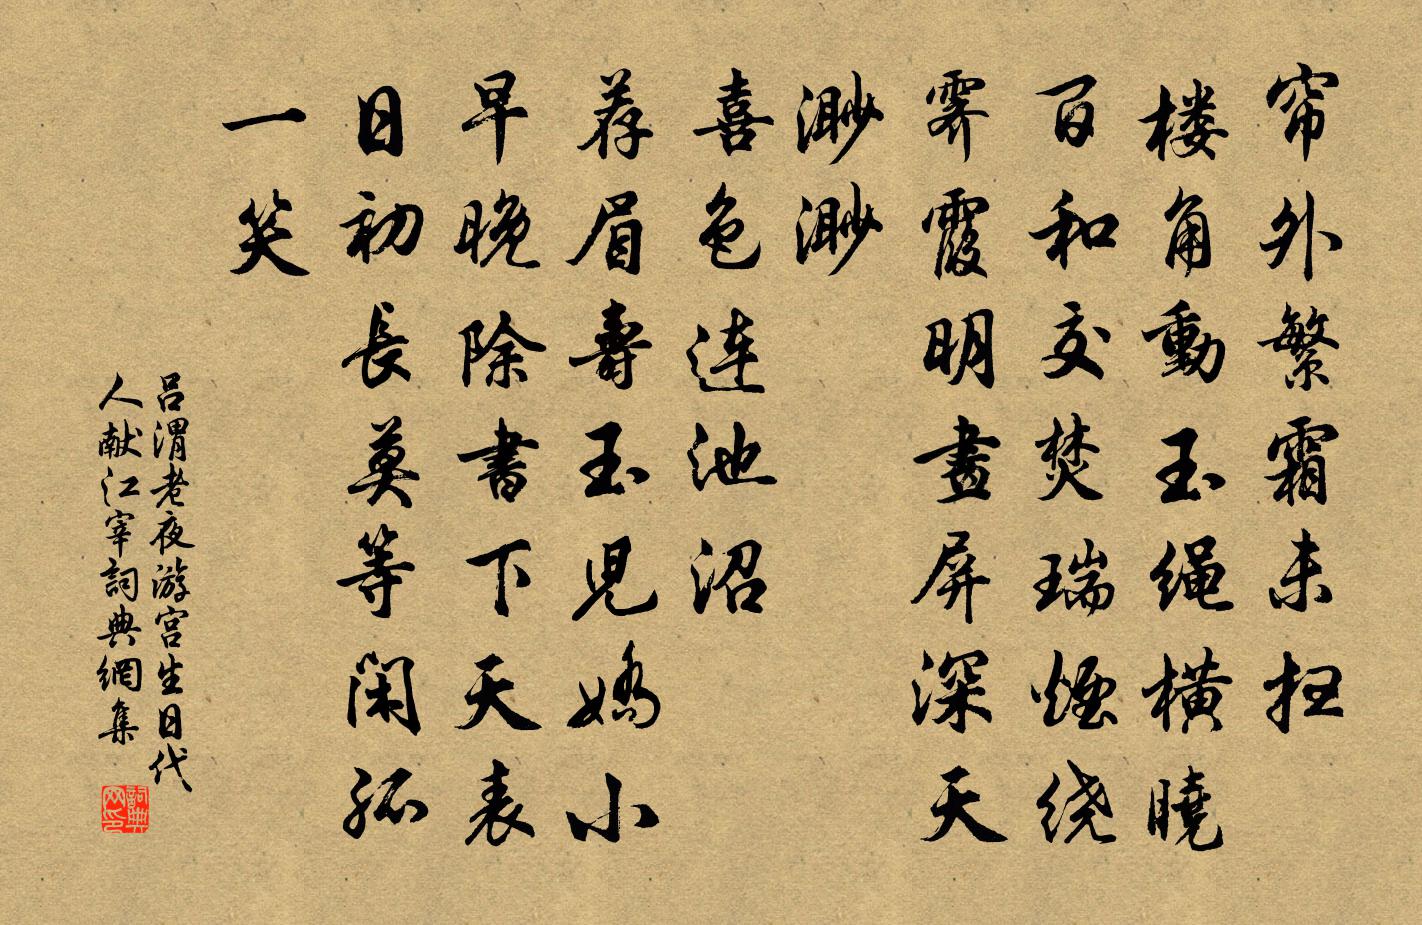 帘外繁霜未扫
楼角動玉绳横曉
百和交焚瑞煙绕
霁霞明畫屏深天
渺渺
喜色连池沼
荐眉壽玉児嬌小
早晚除書下天表
日初長莫等闲孤
一笑
吕渭老夜游宫生日代
人献江宰詞典網集
詞典网印